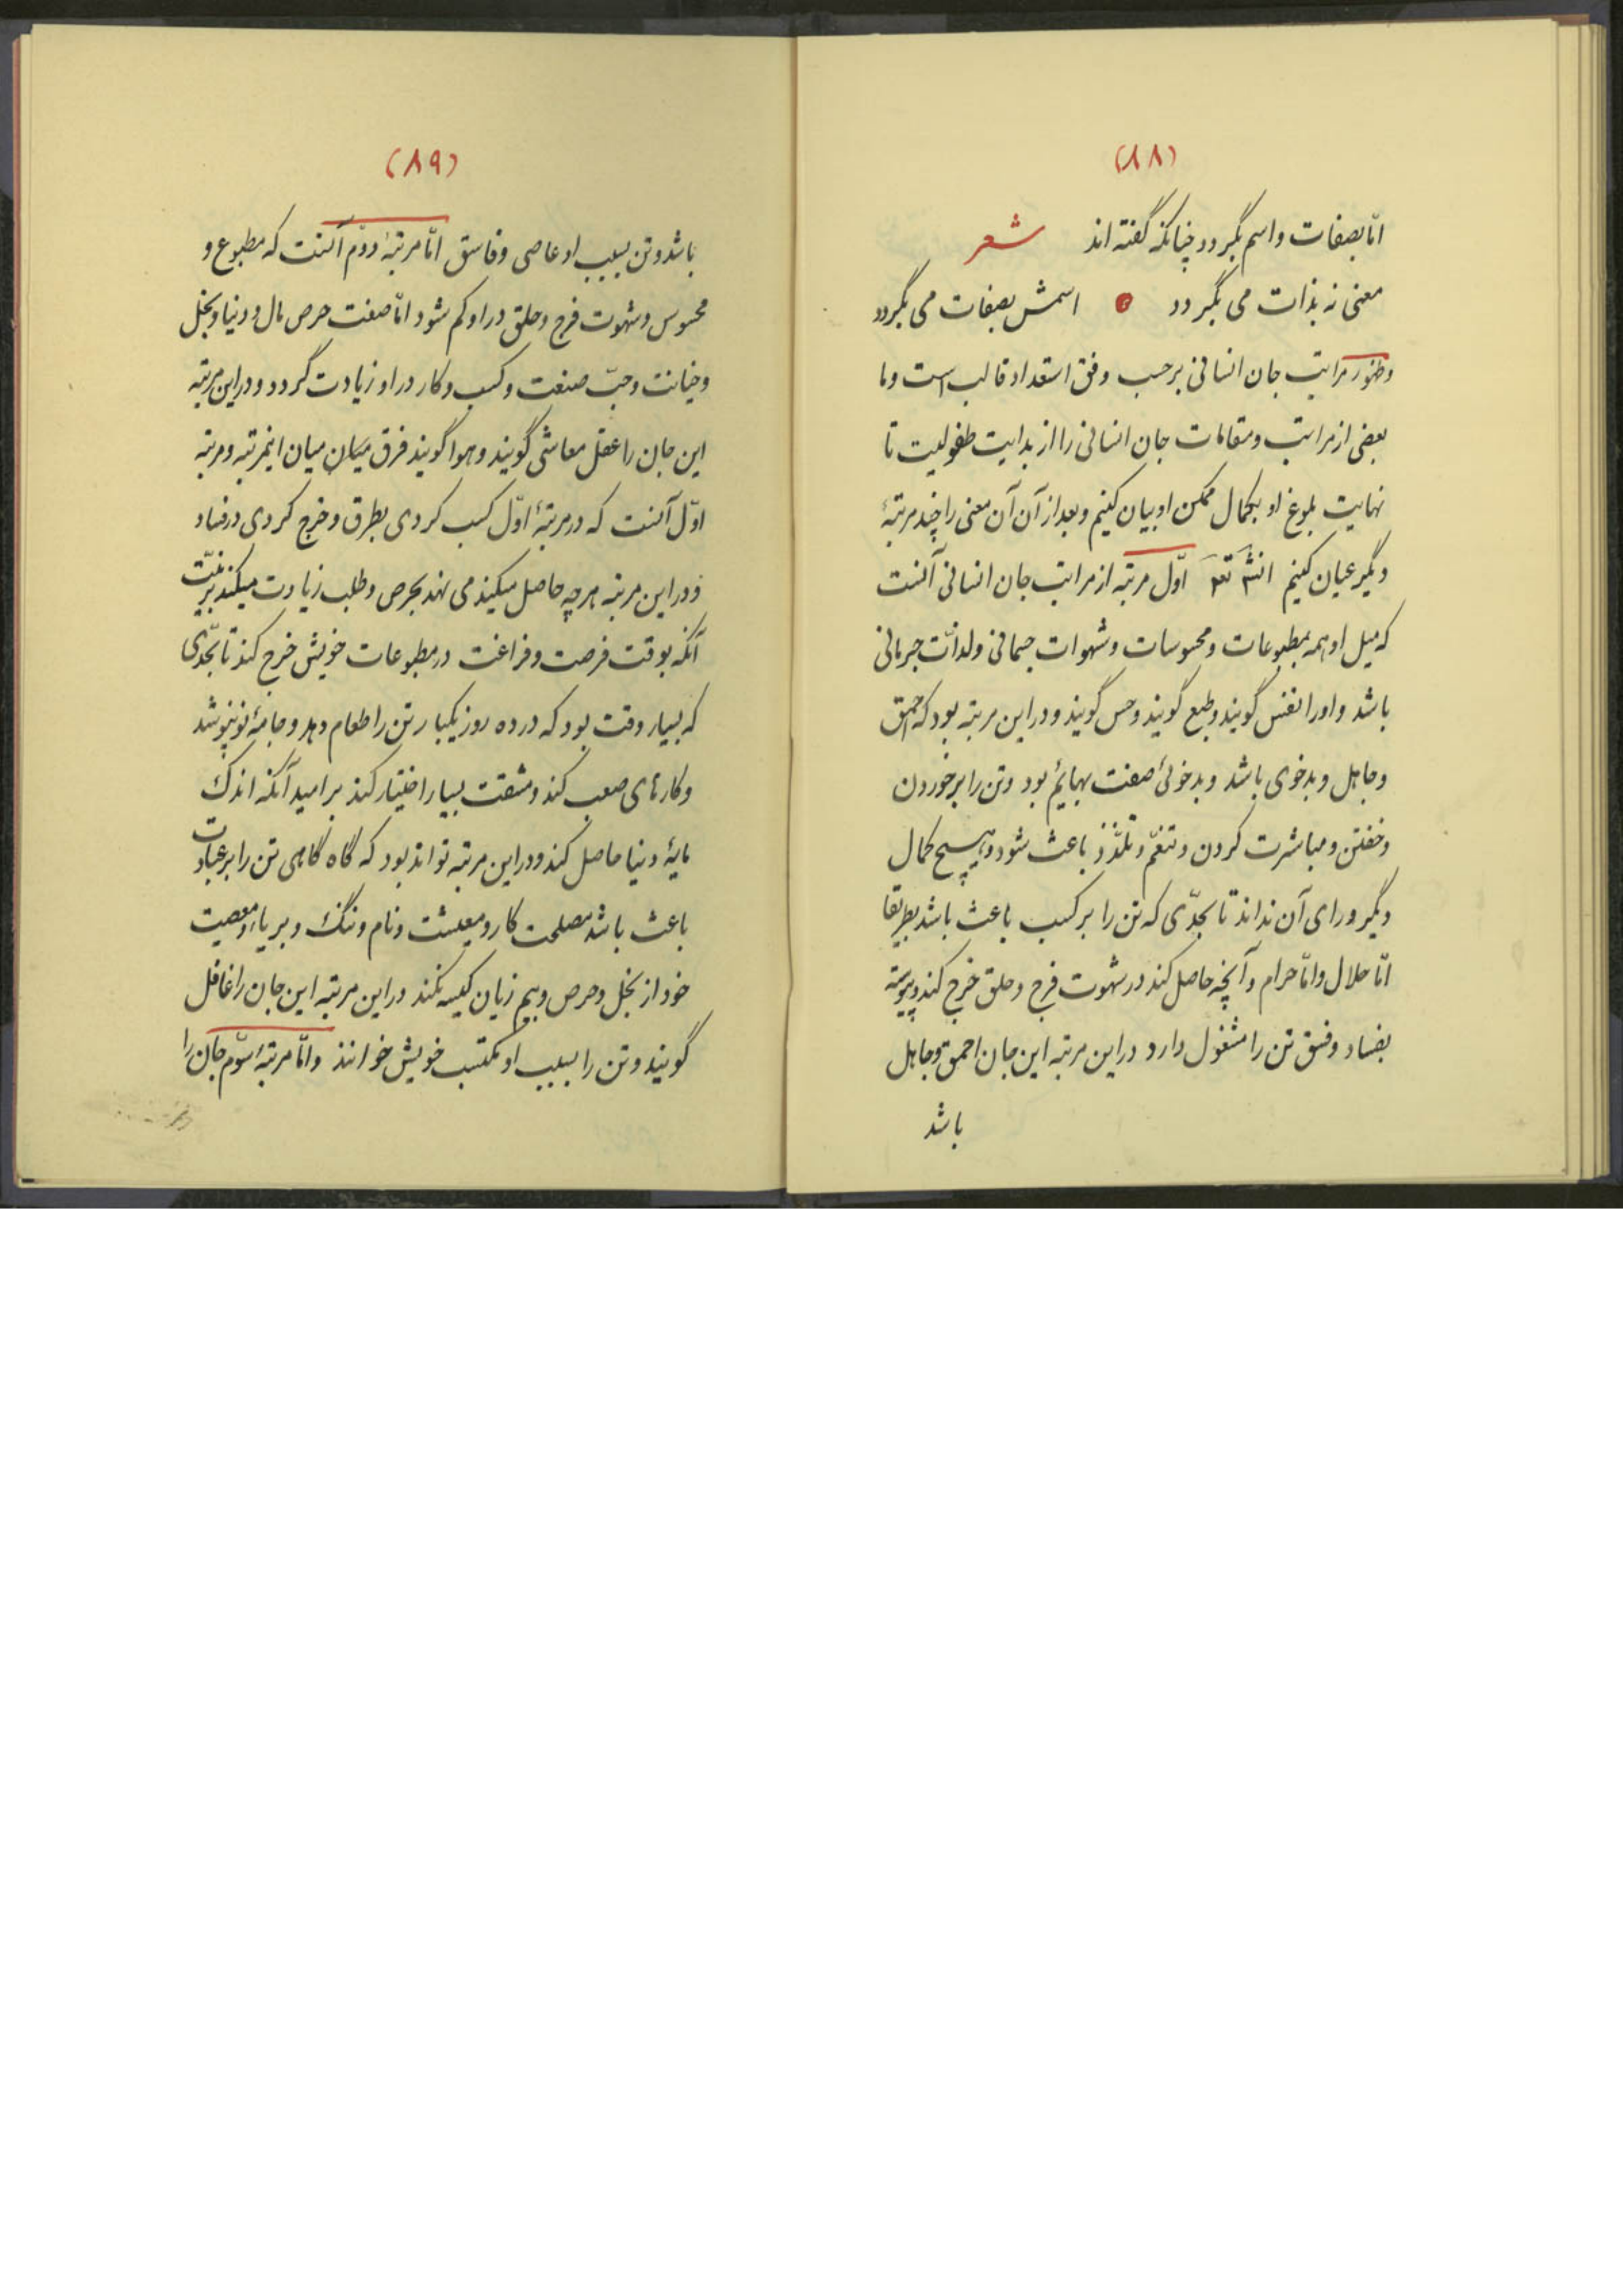 (۸۸)
امّا بصفات و اسم بگردد چنانکه گفته اند شعر
معنی نه بذات می بگردد اسمش بصفات می بگردد
و ظهور مراتب جان انسانی بر حسب وفق استعداد قالب است و ما
بعضی از مراتب و مقامات جان انسانی را از بدایت طفولیت تا
نهایت بلوغ او بکمال ممکن او بیان کنیم و بعد از آن آن معنی را چند مرتبهٔ
دیگر عیان کنیم انشه تعه اوّل مرتبه از مراتب جان انسانی آنست
که میل او همه بمطبوعات و محسوسات و شهوات جسمانی و لذّات جرمانی
باشد و او را نفس گویند و طبع گویند و حس گویند و در این مرتبه بود که احمق
و جاهل و بدخوی باشد و بدخوئی صفت بهایم بود و تن را بر خوردن
و خفتن و مباشرت کردن و تنعّم و تلذّذ باعث شود و هیچ کمال
دیگر ورای آن نداند تا بحدّی که تن را بر کسب باعث باشد بطریقها
امّا حلال و امّا حرام و آنچه حاصل کند در شهوت فرج و حلق خرج کند و پیوسته
بفساد و فسق تن را مشغول دارد در این مرتبه این جان احمق و جاهل
باشد
(۸۹)
باشد و تن بسبب او عاصی و فاسق امّا مرتبهٔ دوّم آنست که مطبوع و
محسوس و شهوت فرج و حلق در او کم شود امّا صفت حرص مال و دنیا و بخل
و خیانت و حبّ صنعت و کسب و کار در او زیادت گردد و در این مرتبه
این جان را عقل معاشی گویند و هوا گویند فرق میان میان اینمرتبه و مرتبه
اوّل آنست که در مرتبهٔ اوّل کسب کردی بطرق و خرج کردی در فساد
و در این مرتبه هرچه حاصل میکند می نهد بحرص و طلب زیادت میکند بر نیّت
آنکه بوقت فرصت و فراغت در مطبوعات خویش خرج کند تا بحدّی
که بسیار وقت بود که در ده روز یکبار تن را طعام دهد و جامهٔ نو نپوشد
و کارهای صعب کند و مشقت بسیار اختیار کند بر امید آنکه اندک
مایهٔ دنیا حاصل کند و در این مرتبه تواند بود که گاه گاهی تن را بر عبادت
باعث باشد مصلحت کار و معیشت و نام و ننگ و بر یاء و معصیت
خود از بخل و حرص و بیم زیان کیسه نکند در این مرتبه این جان را غافل
گویند و تن را بسبب او مکتسب خویش خوانند و امّا مرتبهٔ سوّم جان را